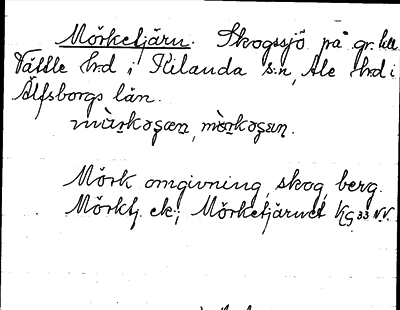 Mörketjärn. Skogssjö på gr. till
Vättle hrd i Kilanda s:n, Ale hrd i
Älfsborgs län.
Mörk omgivning, skog, berg.
Mörktj. ek.; Mörketjärnet KG 33 NV.